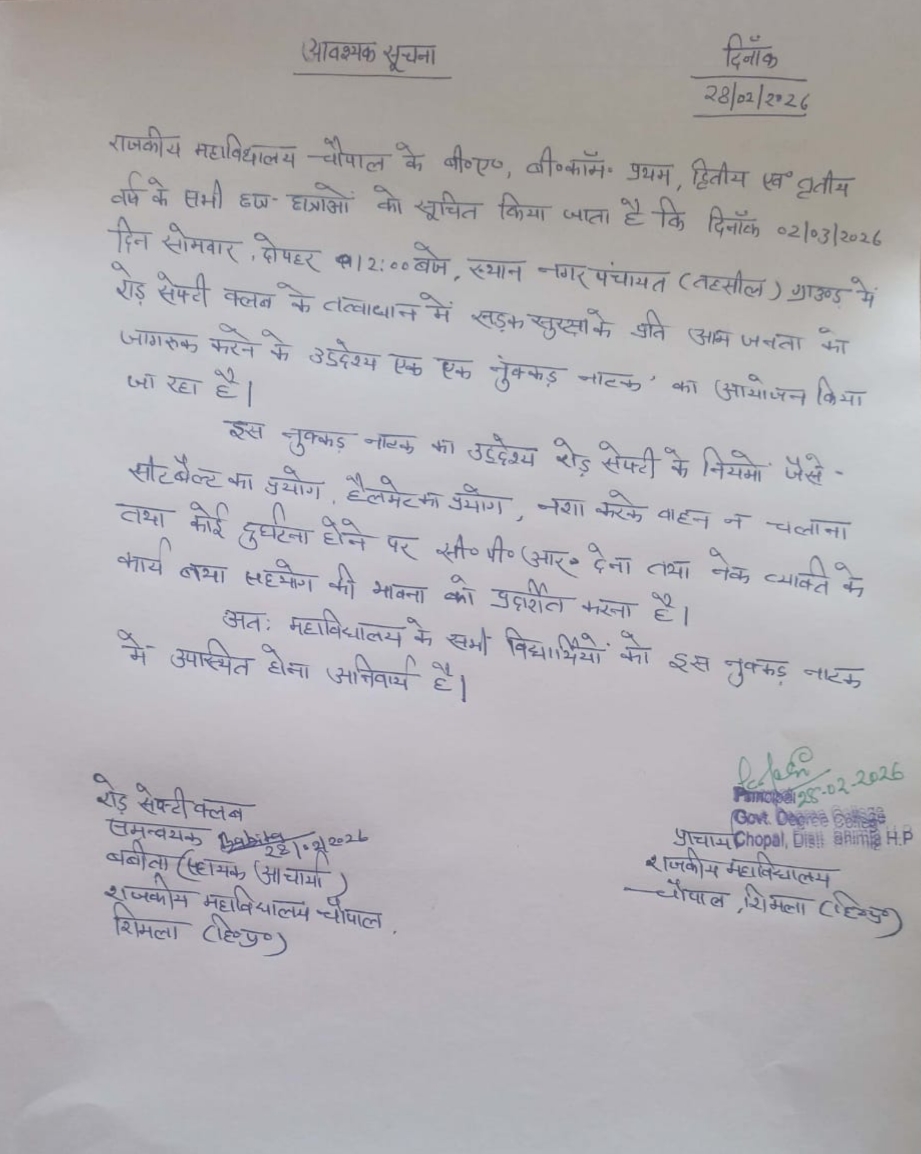 आवश्यक सूचना
दिनाँक
28/02/2026
राजकीय महाविद्यालय चौपाल के बी०ए०, बी०कॉम० प्रथम, द्वितीय एवं तृतीय
वर्ष के सभी छात्र-छात्राओं को सूचित किया जाता है कि दिनाँक 02/03/2026
दिन सोमवार, दोपहर 12:00 बजे, स्थान नगर पंचायत (तहसील) ग्राउण्ड में
रोड़ सेफ्टी क्लब के तत्वाधान में सड़क सुरक्षा के प्रति आम जनता को
जागरुक करने के उद्देश्य एक एक 'नुक्कड़ नाटक' का आयोजन किया
जा रहा है।
इस नुक्कड़ नाटक का उद्देश्य रोड़ सेफ्टी के नियमों जैसे -
सीटबैल्ट का प्रयोग, हैलमेट का प्रयोग, नशा करके वाहन न चलाना
तथा कोई दुर्घटना होने पर सी०पी०आर० देना तथा नेक व्यक्ति के
कार्य तथा सहयोग की भावना को प्रदर्शित करना है।
अतः महाविद्यालय के सभी विद्यार्थियों को इस नुक्कड़ नाटक
में उपस्थित होना अनिवार्य है।
रोड़ सेफ्टी क्लब
समन्वयक Babita
28/02/2026
बबीता (सहायक आचार्या)
राजकीय महाविद्यालय चौपाल,
शिमला (हि०प्र०)
28-02-2026
Principal
Govt. Degree College
Chopal, Distt. Shimla H.P
प्राचार्य
राजकीय महाविद्यालय
चौपाल, शिमला (हि०प्र०)